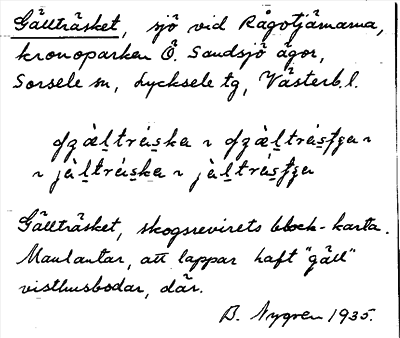 Gällträsket, sjö vid Rågotjärnarna,
kronoparken Ö. Sandsjö ägor,
Sorsele sn, Lycksele tg, Västerb. l.
ʤàl̲tràs̲ka ~ ʤàl̲tràs̲ʃʒa ~
~ jàl̲tràs̲ka ~ jàl̲tràs̲ʃʒa
Gällträsket, skogsrevirets block-karta.
Man antar, att lappar haft "gäll"
visthusbodar, där.
B. Nygren 1935.